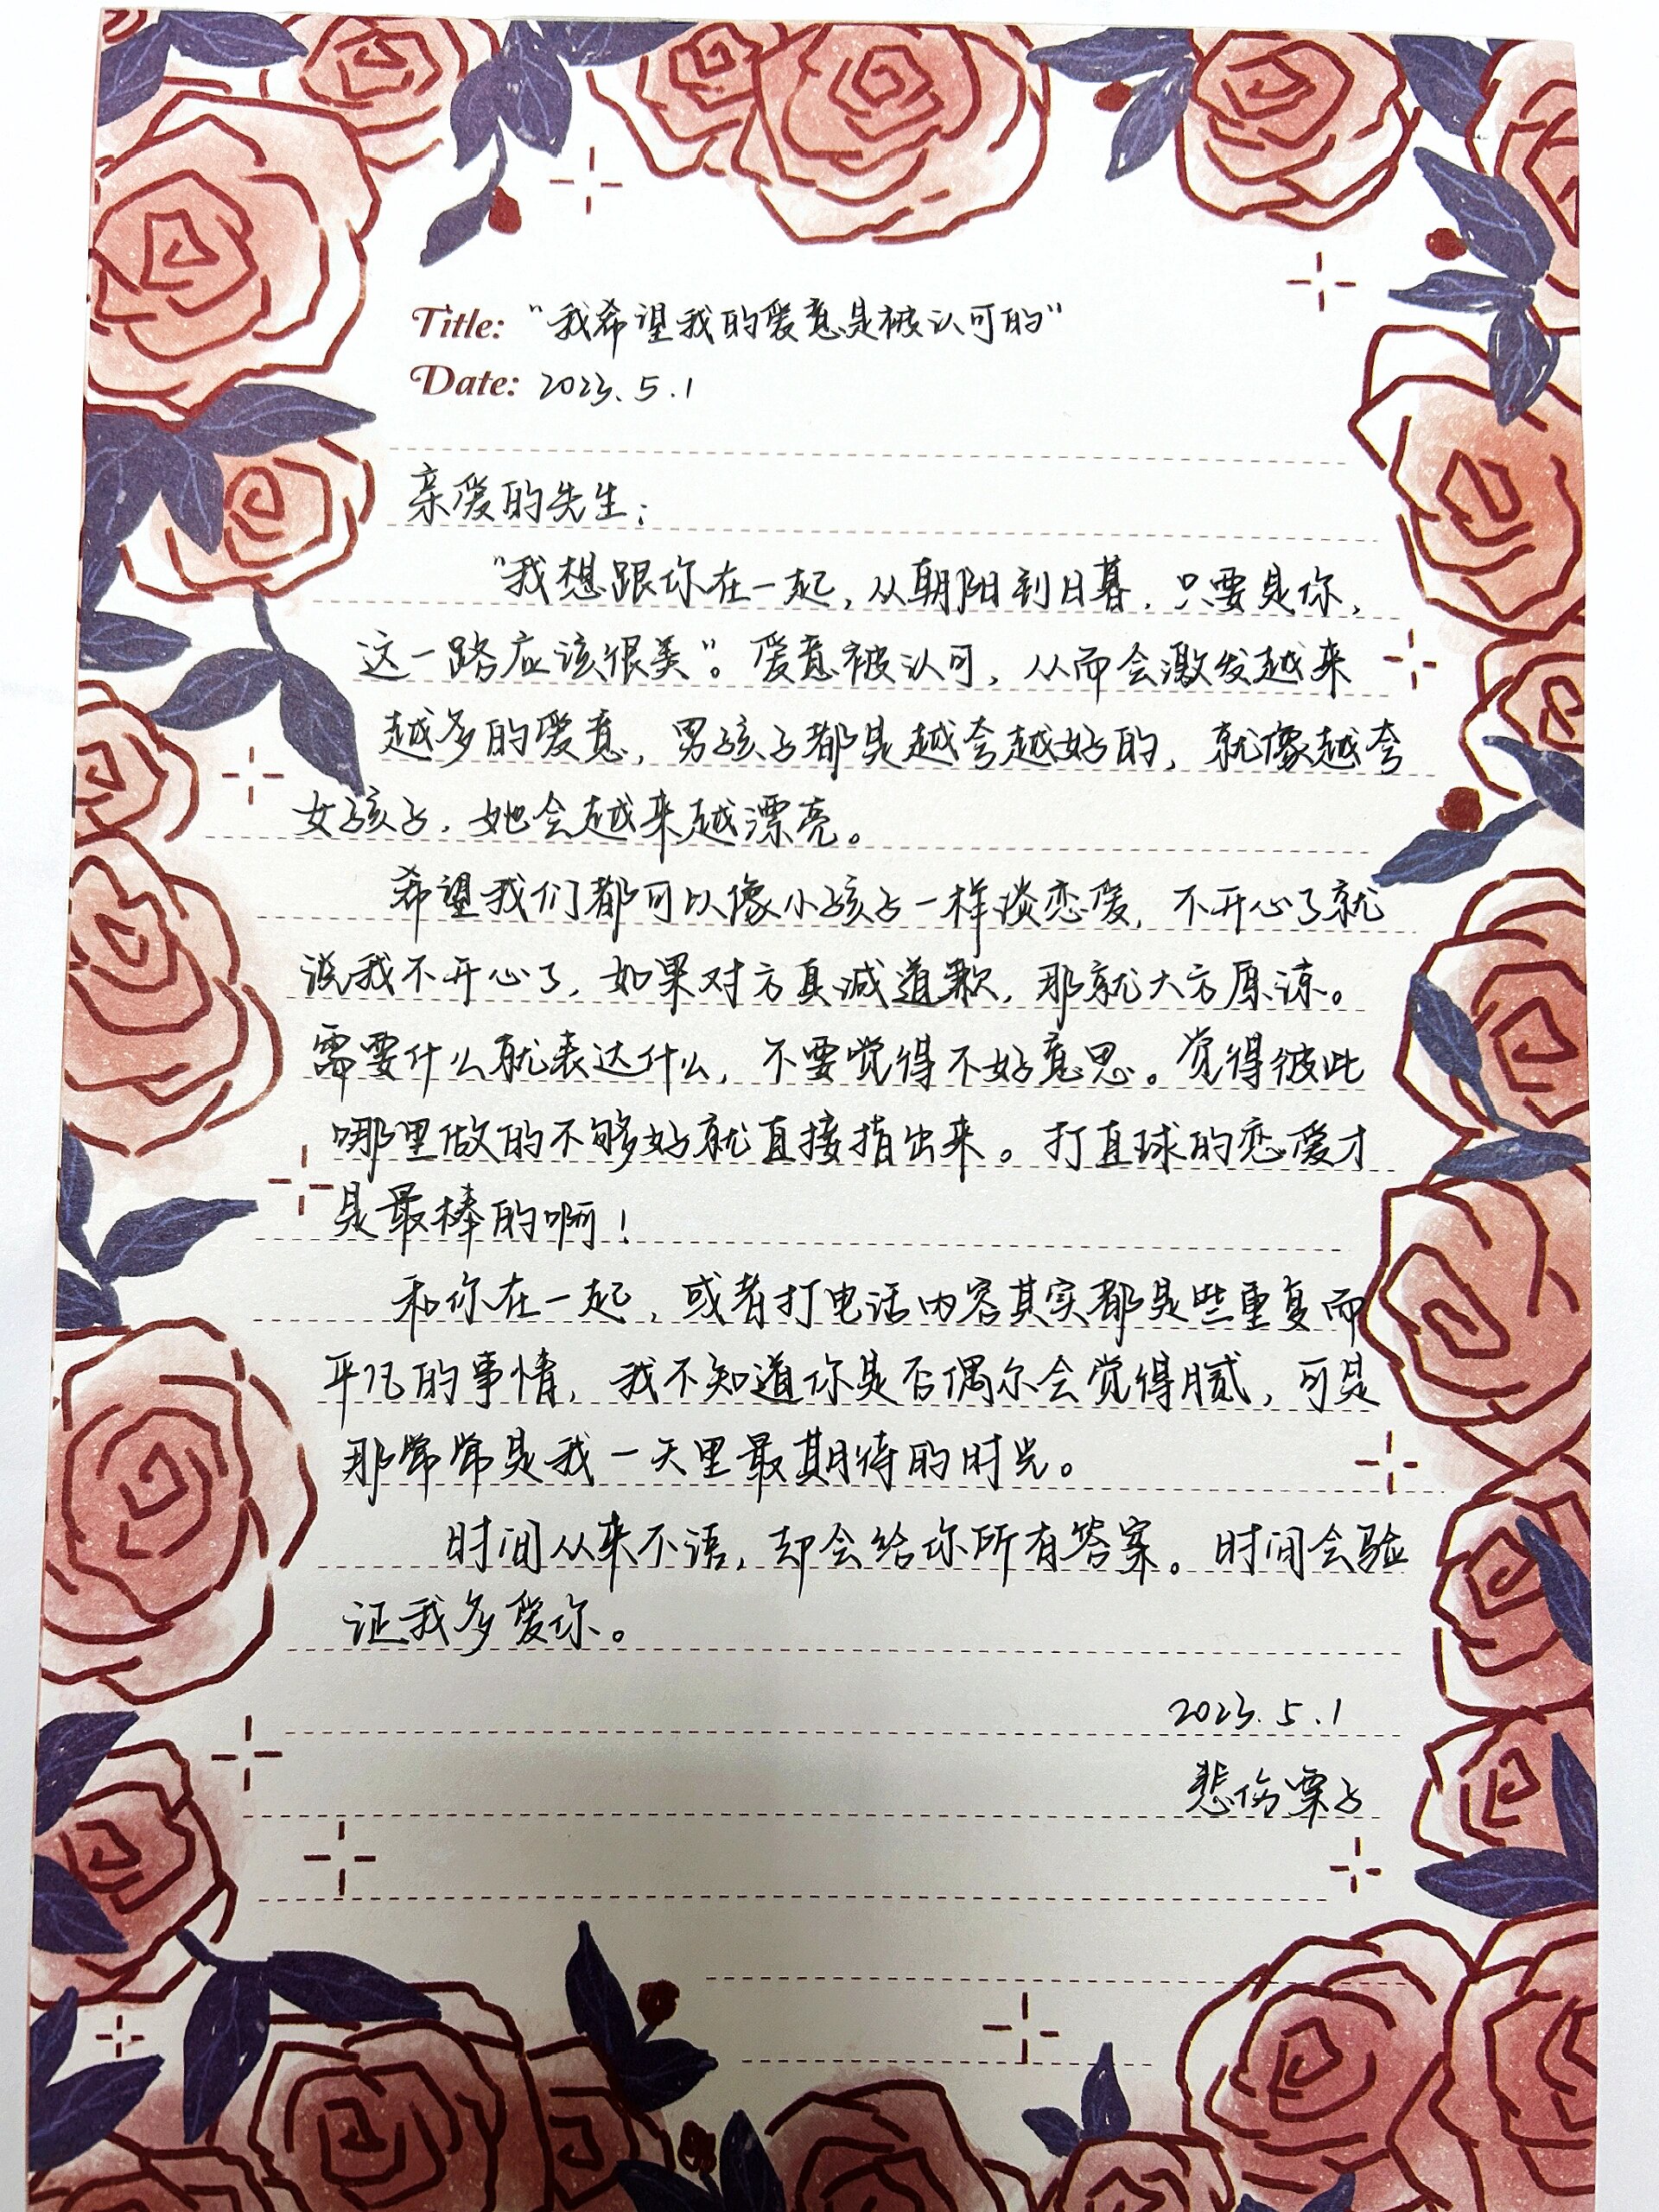 Title: "我希望我的爱意是被认可的"
Date: 2023.5.1
亲爱的先生:
"我想跟你在一起,从朝阳到日暮,只要是你,
这一路应该很美"。爱意被认可,从而会激发越来
越多的爱意,男孩子都是越夸越好的,就像越夸
女孩子,她会越来越漂亮。
希望我们都可以像小孩子一样谈恋爱,不开心了就
说我不开心了,如果对方真诚道歉,那就大方原谅。
需要什么就表达什么,不要觉得不好意思。觉得彼此
哪里做的不够好就直接指出来。打直球的恋爱才
是最棒的啊!
和你在一起,或者打电话内容其实都是些重复而
平凡的事情,我不知道你是否偶尔会觉得腻,可是
那常常是我一天里最期待的时光。
时间从来不语,却会给你所有答案。时间会验
证我多爱你。
2023.5.1
悲伤栗子